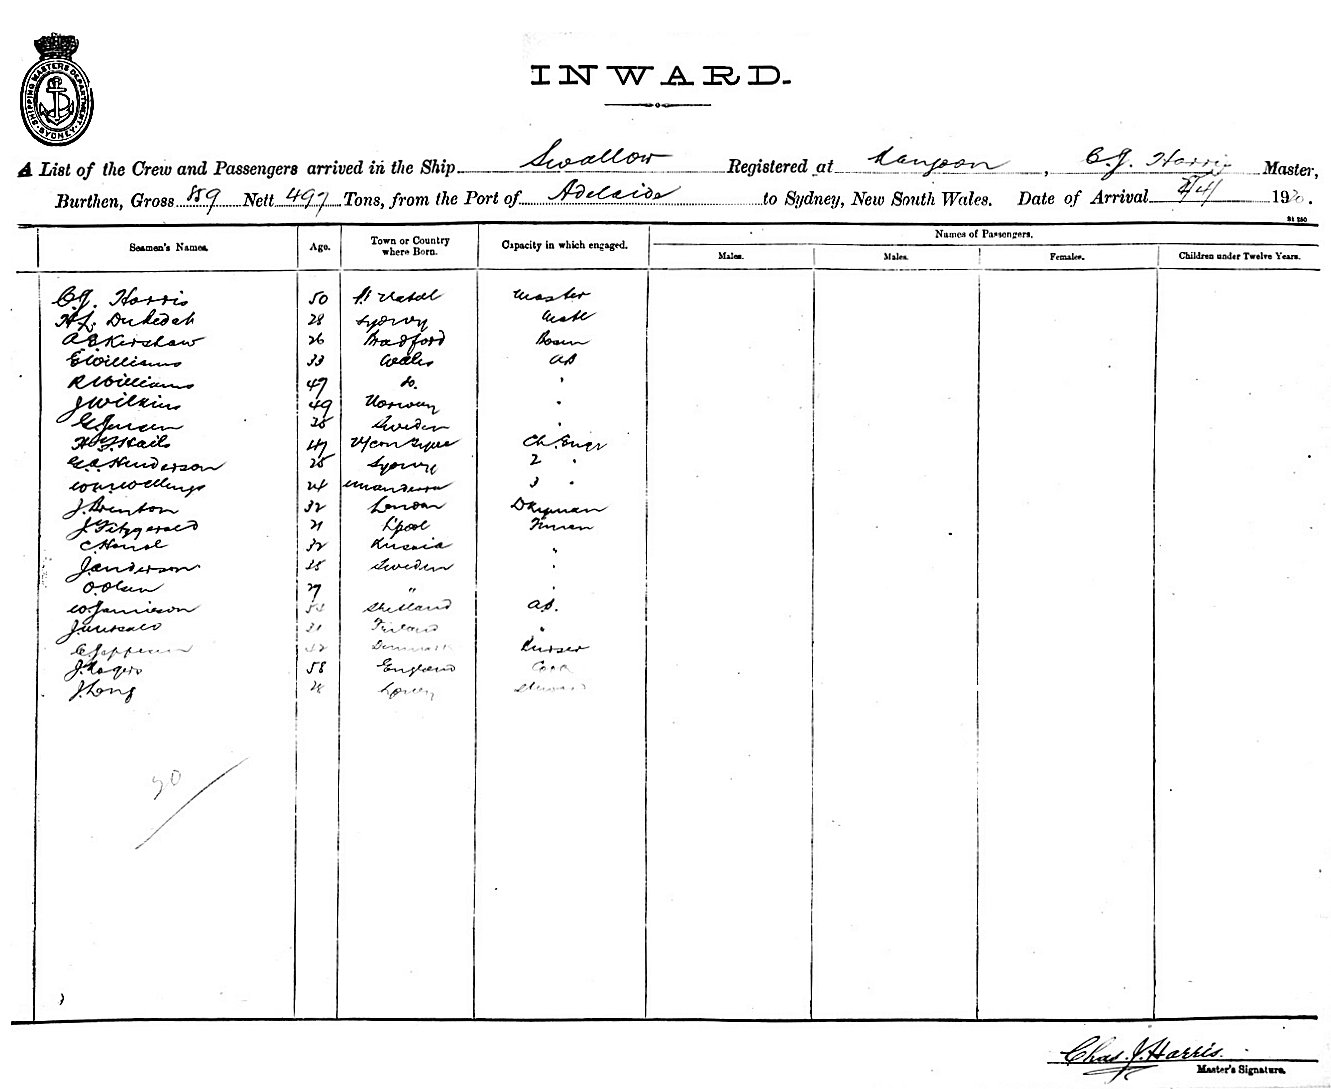 SHIPPING MASTERS DEPARTMENT
SYDNEY
INWARD.
A List of the Crew and Passengers arrived in the Ship Swallow Registered at Rangoon, C.J. Harris Master,
Burthen, Gross 889 Nett 497 Tons, from the Port of Adelaide to Sydney, New South Wales. Date of Arrival 19
Seamen's Names. Age. Town or Country where Born. Capacity in which engaged. Names of Passengers.
Males. Males. Females. Children under Twelve Years.
C.J. Harris 50 Pt Natal Master
H.L. 28 Sydney Mate
A E Kershaw 26 Bradford Bosun
E Williams 33 Wales AB
R Williams 47 Do. "
J Wilkins 49 Norway "
G Jensen Sweden "
47 Ch. Engr
G.A. Henderson 25 Sydney 2 "
24 3 "
J. Brenton 32 London Dkyman
J. Fitzgerald 21 L'pool Fireman
C. 32 Russia "
J. Anderson Sweden "
O. Olsen 29 " "
W. Jamieson Shetland AB.
J. 31 Finland "
Denmark
J. Rogers 58 England Cook
J. Long 28 Sydney Steward
20
Chas. J. Harris.
Master's Signature.